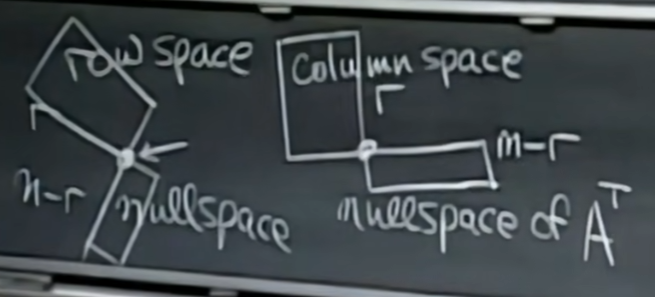 row space
r
n-r
nullspace
column space
r
m-r
nullspace of Aᵀ